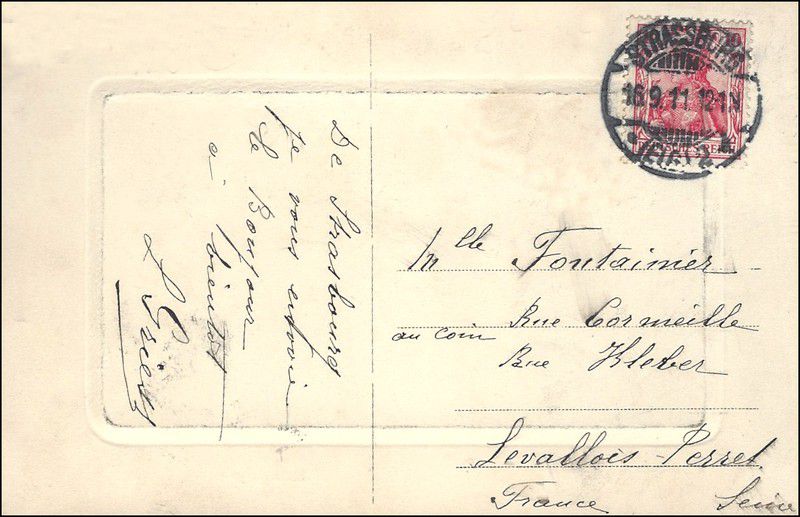 De Strasbourg
je vous envoie
le Bonjour
a bientot
L
STRASSBURG
18.9.11.12-1N
DEUTSCHES REICH
Mlle Fontainier
Rue Cormeille
au coin Rue Kleber
Levallois-Perret
France Seine